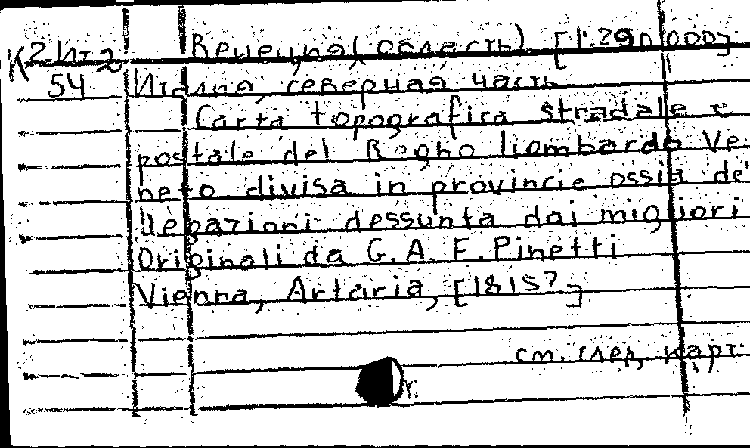 К 2-Ит-2 Венеция (область) [1:290 000]
54 Италия, северная часть
Carta topografica stradale e
postale del Regno Lombardo Ve-
neto divisa in provincie ossia de-
legazioni dessunta dai migliori
Originali da G. A. F. Pinetti
Vienna, Artaria, [1815?]
см. след. карт.